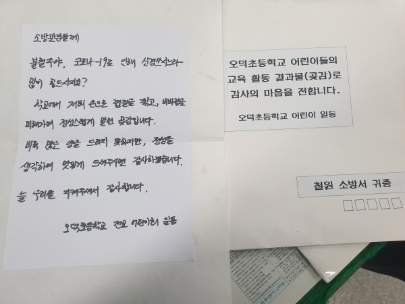 소방관분들께
불철주야, 코로나-19로 인해 신경쓰시느라
많이 힘드시지요?
학교에서 저희 손으로 꽃길을 찢고, 비바람을
피해가며 정성스럽게 말린 곶감입니다.
비록 많은 양을 드리지 못하지만, 정성을
생각하며 맛있게 드셔주시면 감사하겠습니다.
늘 우리를 지켜주셔서 감사합니다.
오덕초등학교 전교 어린이회 일동
오덕초등학교 어린이들의
교육 활동 결과물(곶감)로
감사의 마음을 전합니다.
오덕초등학교 어린이 일동
철원 소방서 귀중